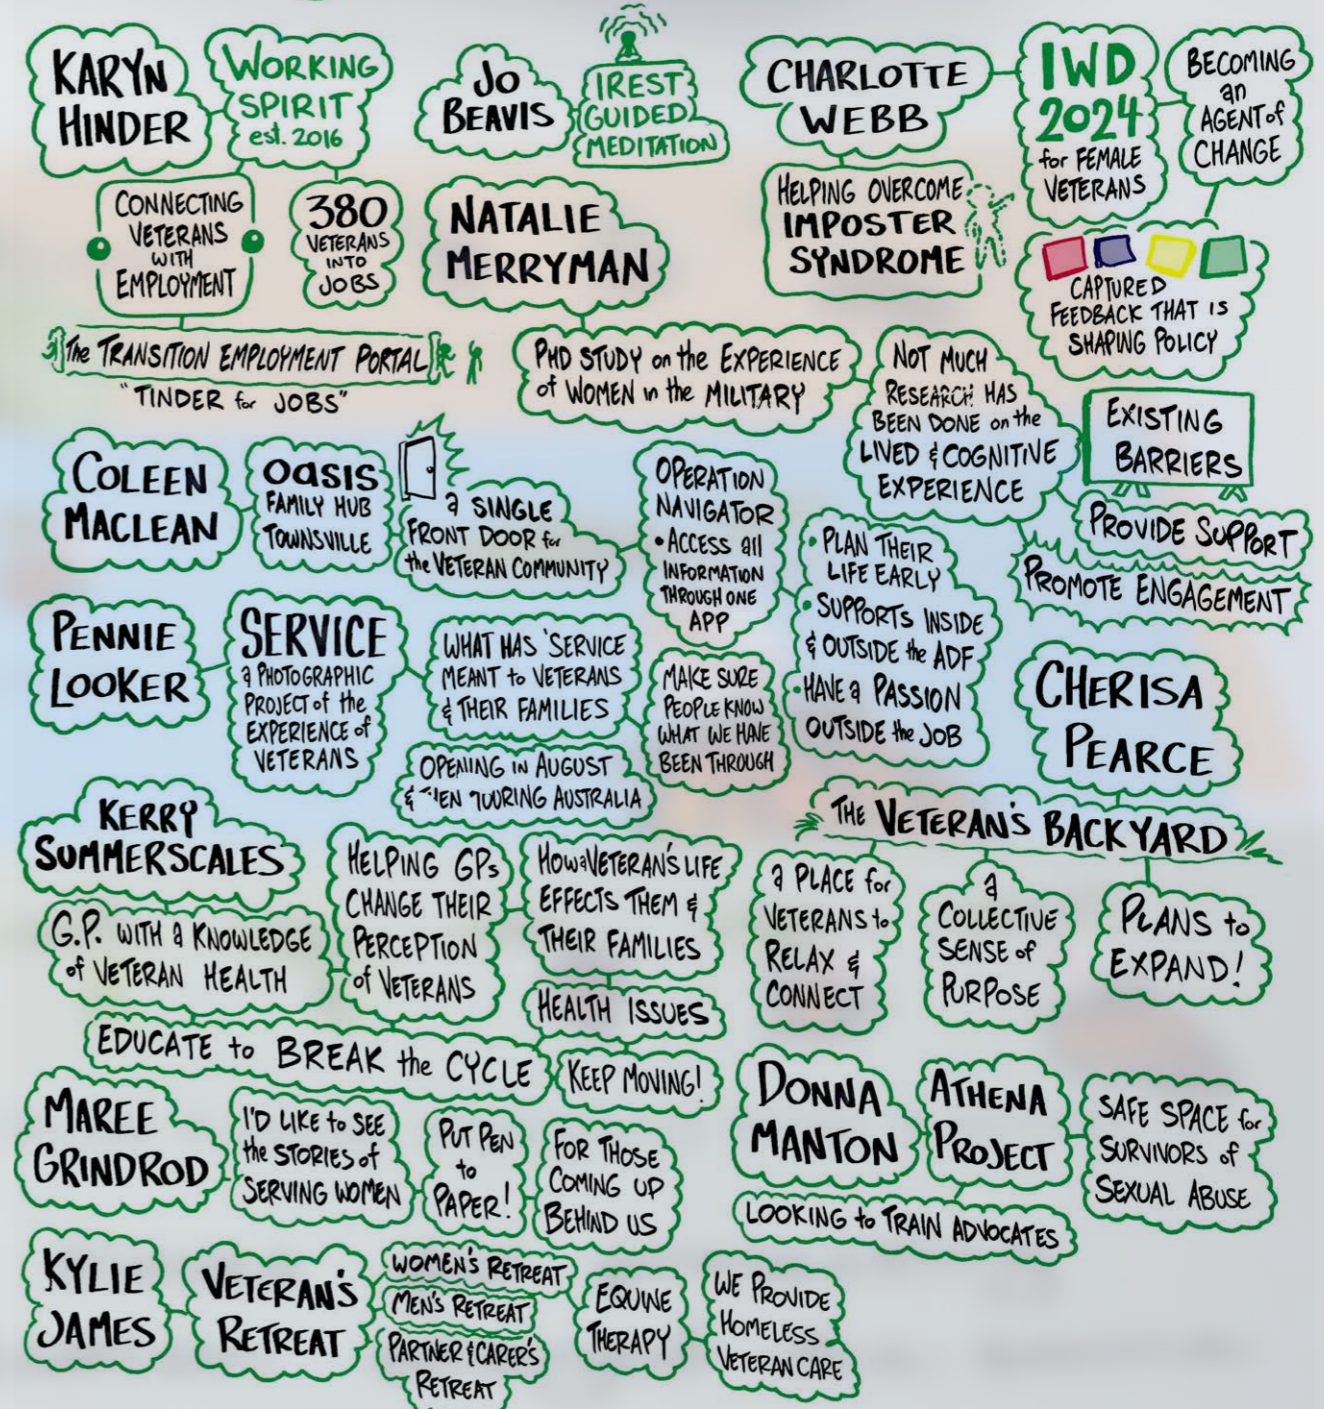 KARYN
HINDER
WORKING
SPIRIT
est. 2016
CONNECTING
VETERANS
WITH
EMPLOYMENT
380
VETERANS
INTO
JOBS
The TRANSITION EMPLOYMENT PORTAL
"TINDER for JOBS"
JO
BEAVIS
IREST
GUIDED
MEDITATION
NATALIE
MERRYMAN
PHD STUDY on the EXPERIENCE
of WOMEN in the MILITARY
NOT MUCH
RESEARCH HAS
BEEN DONE on the
LIVED & COGNITIVE
EXPERIENCE
EXISTING
BARRIERS
PROVIDE SUPPORT
PROMOTE ENGAGEMENT
CHARLOTTE
WEBB
HELPING OVERCOME
IMPOSTER
SYNDROME
IWD
2024
for FEMALE
VETERANS
BECOMING
an
AGENT of
CHANGE
CAPTURED
FEEDBACK THAT IS
SHAPING POLICY
COLEEN
MACLEAN
OASIS
FAMILY HUB
TOWNSVILLE
a SINGLE
FRONT DOOR for
the VETERAN COMMUNITY
OPERATION
NAVIGATOR
• ACCESS all
INFORMATION
THROUGH ONE
APP
• PLAN THEIR
LIFE EARLY
• SUPPORTS INSIDE
& OUTSIDE the ADF
• HAVE a PASSION
OUTSIDE the JOB
PENNIE
LOOKER
SERVICE
a PHOTOGRAPHIC
PROJECT of the
EXPERIENCE of
VETERANS
WHAT HAS 'SERVICE
MEANT to VETERANS
& THEIR FAMILIES
MAKE SURE
PEOPLE KNOW
WHAT WE HAVE
BEEN THROUGH
OPENING IN AUGUST
& TOURING AUSTRALIA
CHERISA
PEARCE
THE VETERAN'S BACKYARD
a PLACE for
VETERANS to
RELAX &
CONNECT
a
COLLECTIVE
SENSE of
PURPOSE
PLANS to
EXPAND!
KERRY
SUMMERSCALES
G.P. WITH a KNOWLEDGE
of VETERAN HEALTH
HELPING GPs
CHANGE THEIR
PERCEPTION
of VETERANS
HOW a VETERAN'S LIFE
EFFECTS THEM &
THEIR FAMILIES
HEALTH ISSUES
KEEP MOVING!
EDUCATE to BREAK the CYCLE
MAREE
GRINDROD
I'D LIKE to SEE
the STORIES of
SERVING WOMEN
PUT PEN
to
PAPER!
FOR THOSE
COMING UP
BEHIND US
DONNA
MANTON
ATHENA
PROJECT
SAFE SPACE for
SURVIVORS of
SEXUAL ABUSE
LOOKING to TRAIN ADVOCATES
KYLIE
JAMES
VETERAN'S
RETREAT
WOMEN'S RETREAT
MEN'S RETREAT
PARTNER & CARER'S
RETREAT
EQUINE
THERAPY
WE PROVIDE
HOMELESS
VETERAN CARE